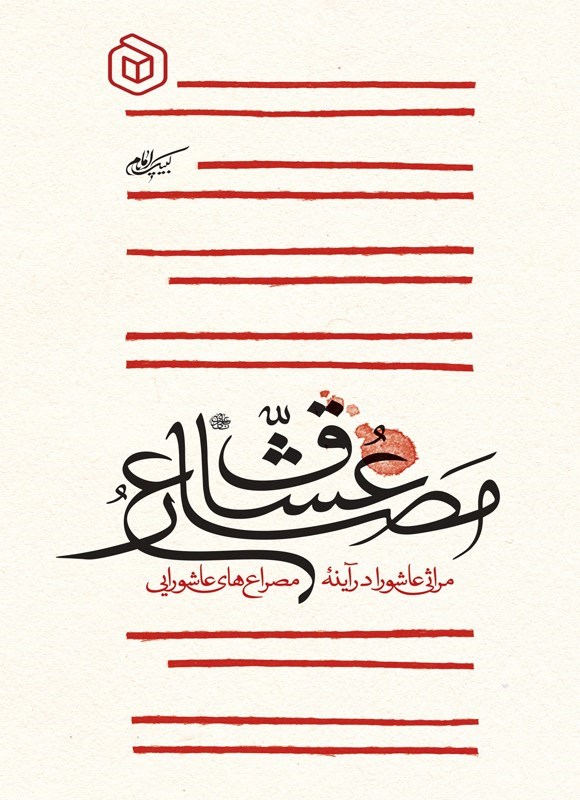 مَصارعُ عُشّاق
مراثی عاشورا در آینهٔ مصراع‌های عاشورایی